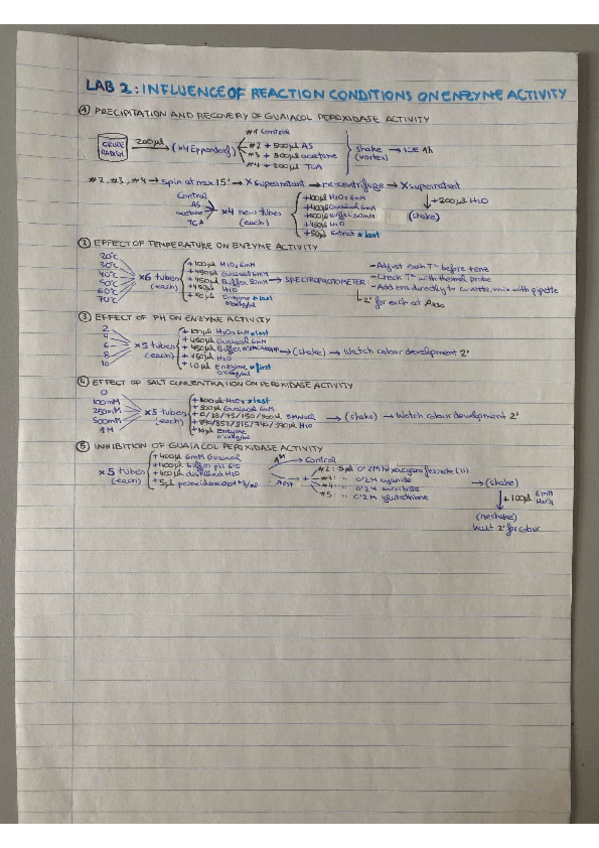 LAB 2: INFLUENCE OF REACTION CONDITIONS ON ENZYME ACTIVITY
① PRECIPITATION AND RECOVERY OF GUAIACOL PEROXIDASE ACTIVITY
CRUDE RADISH 200µl (x4 Eppendorf)
#1 Control
#2 + 500µl AS
#3 + 800µl acetone
#4 + 200µl TCA
shake → ICE 1h
(vortex)
#2, #3, #4 → spin at max 15' → X supernatant → recentrifuge → X supernatant
+200µl H2O
(shake)
Control
AS
acetone
TCA
x4 new tubes
(each)
+100µl H2O2 6mM
+400µl Guaiacol 6mM
+400µl Buffer 50mM
+450µl H2O
+50µl Extract *last
② EFFECT OF TEMPERATURE ON ENZYME ACTIVITY
20ºC
30ºC
40ºC
50ºC
60ºC
70ºC
x6 tubes
(each)
+100µl H2O2 6mM
+450µl Guaiacol 6mM
+450µl Buffer 50mM
+450µl H2O
+50µl Enzyme *last
→ SPECTROPHOTOMETER:
- Adjust each Tº before
- Check Tº with thermal probe
- Add ens directly to cuvette, mix with pipette
2' for each at A430
③ EFFECT OF PH ON ENZYME ACTIVITY
2
4
6
8
10
x5 tubes
(each)
+100µl H2O2 6mM *last
+450µl Guaiacol 6mM
+450µl Buffer
+450µl H2O
+10µl Enzyme *first
→ (shake) → Watch colour development 2'
④ EFFECT OF SALT CONCENTRATION ON PEROXIDASE ACTIVITY
0
100mM
250mM
500mM
1M
x5 tubes
(each)
+100µl H2O2 *last
+300µl Guaiacol 6mM
+0/38/75/150/300µl 5M NaCl
H2O
+10µl Enzyme
→ (shake) → Watch colour development 2'
⑤ INHIBITION OF GUAIACOL PEROXIDASE ACTIVITY
x5 tubes
(each)
+400µl 6mM Guaiacol
+400µl buffer pH 6'5
+400µl distilled H2O
+5µl peroxidase
#1 → Control
rest +
#2: 5µl 0'2M hexacyanoferrate (II)
#3: " 0'2M cyanide
#4: "
#5: " 0'2M glutathione
→ (shake)
+100µl 6mM H2O2
(no shake)
Wait 2' for colour